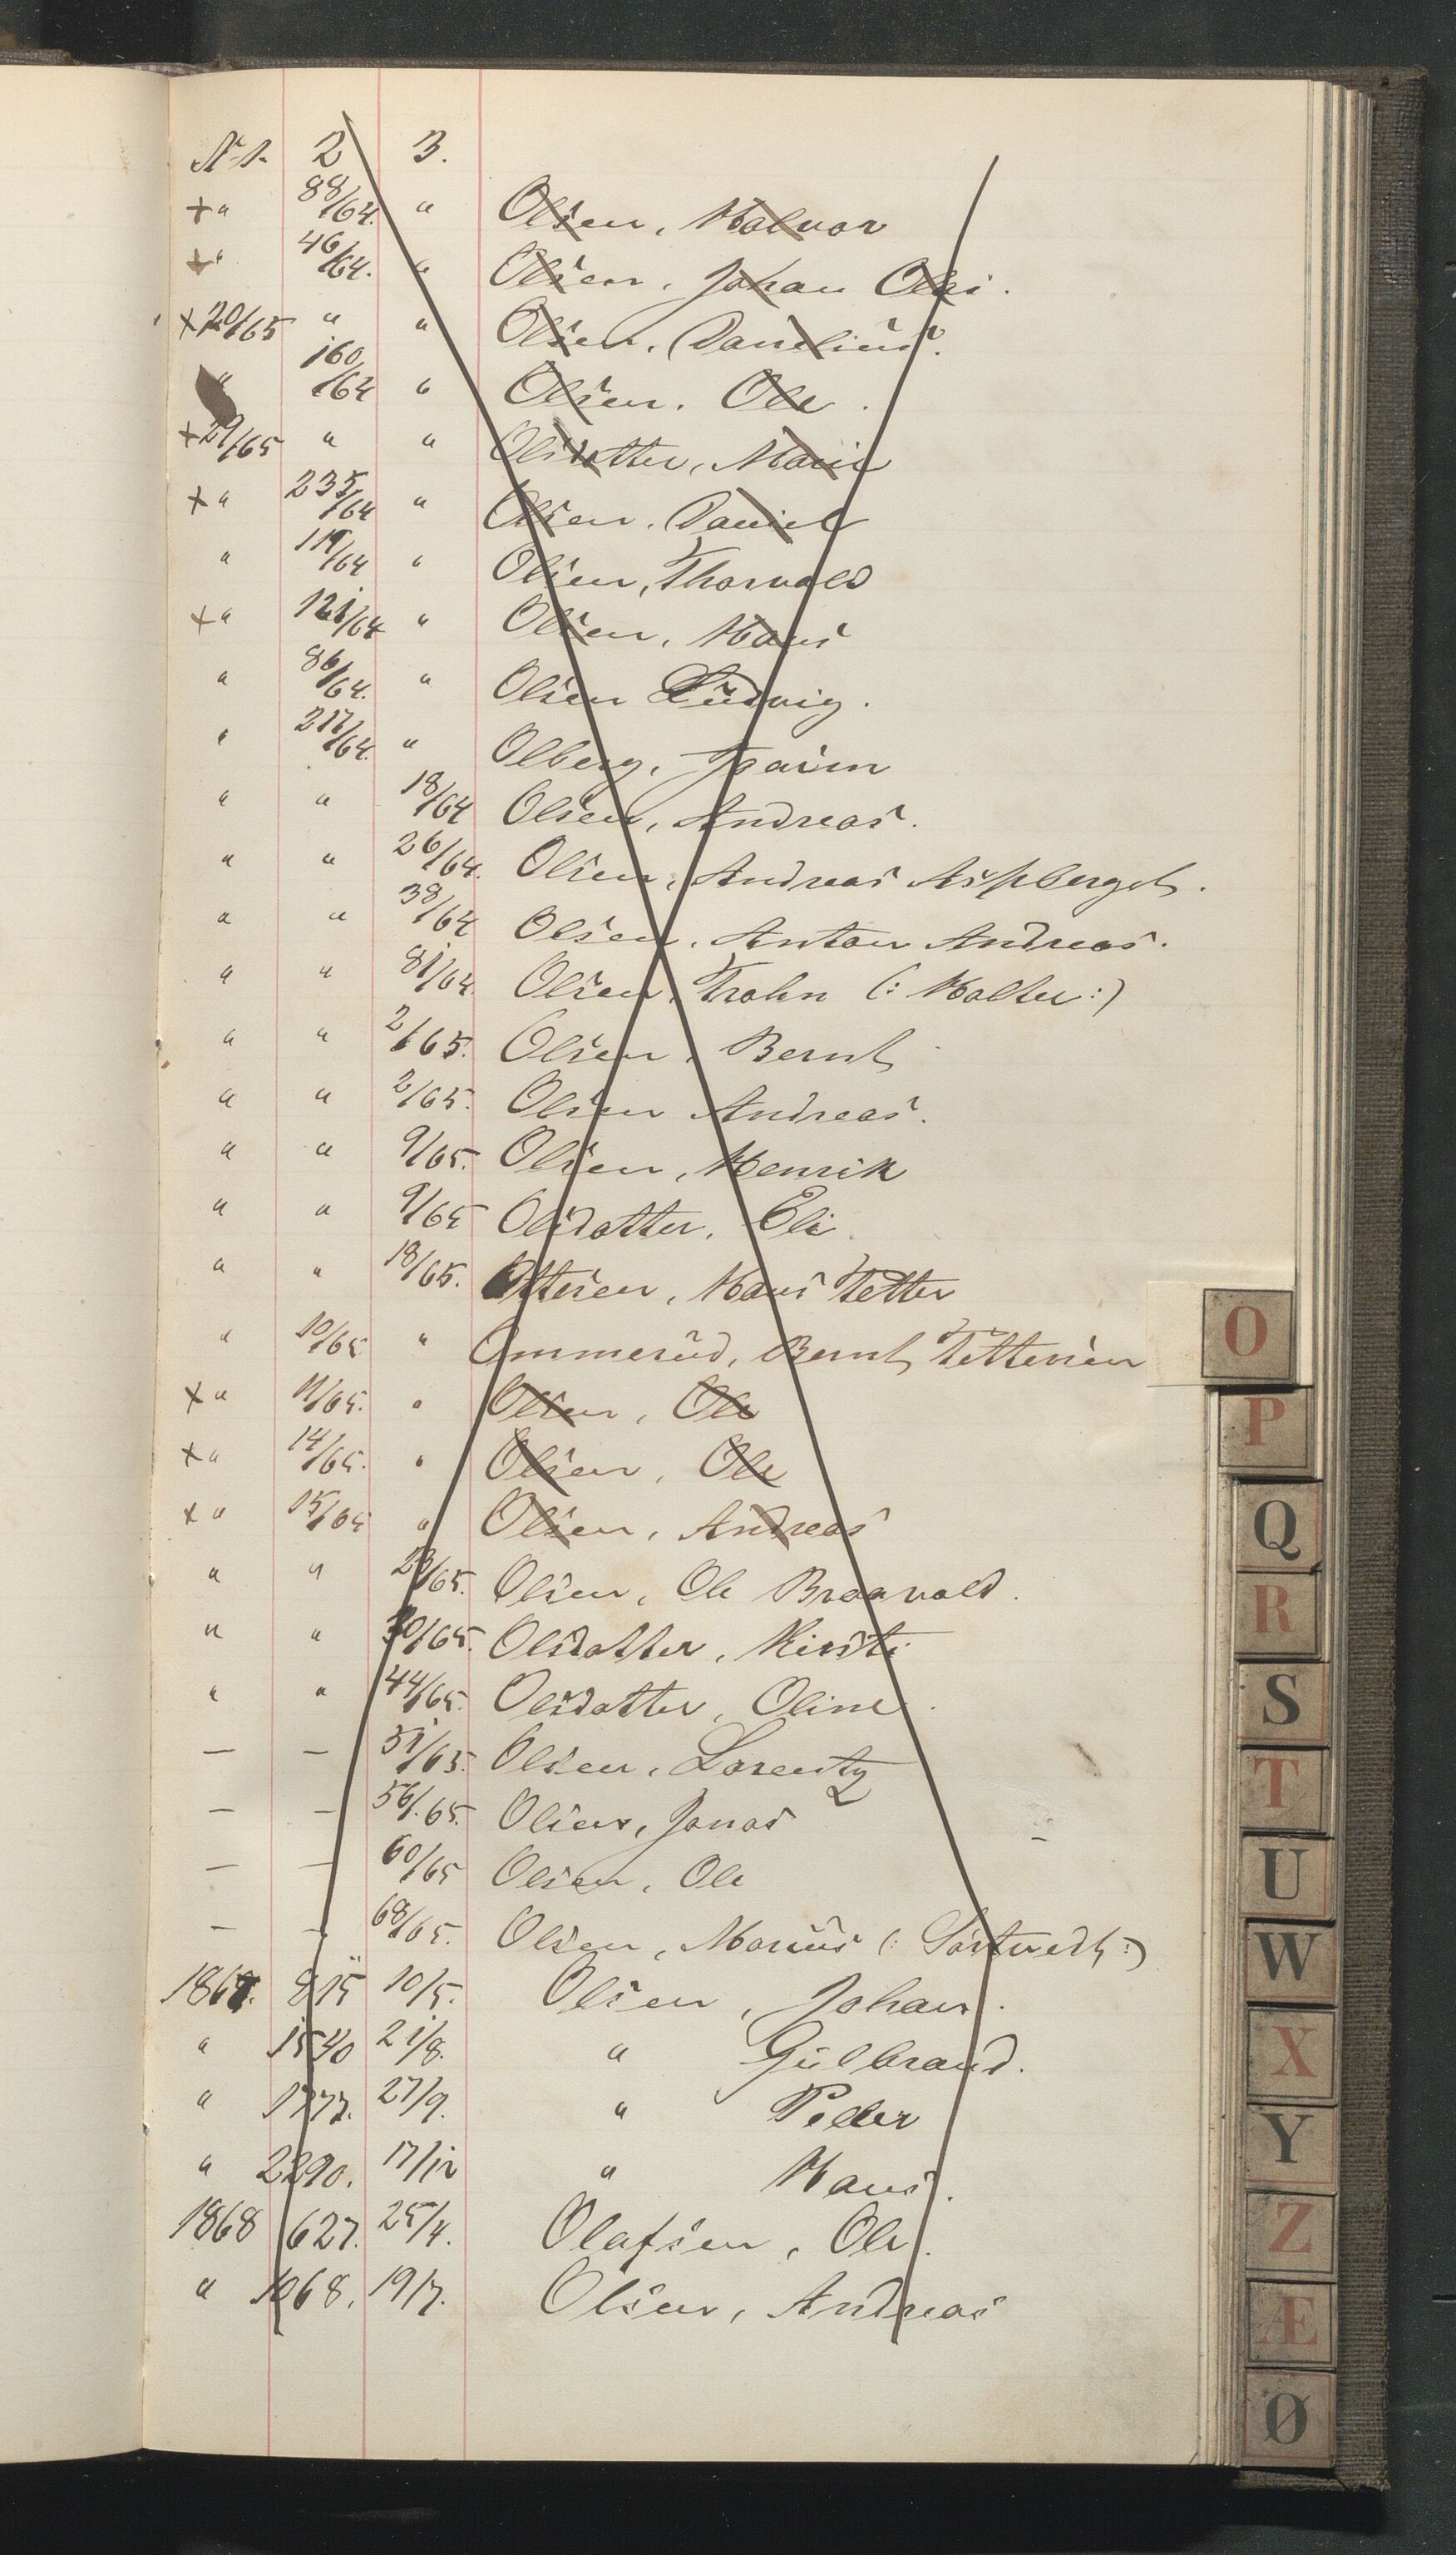 No 1. 2 3.
+ " 88/64. " Olsen, Halvor
+ " 46/64. " Olsen, Johan Olai.
+ 20/65 " " Olsen, Danelius.
" 160/64 " Olsen. Ole.
+ 29/65 " " Olsdatter, Marie
+ " 235/64 " Olsen. Daniel
" 119/64 " Olsen, Thorvald
+ " 121/64 " Olsen, Hans
" 86/64. " Olsen Ludvig.
" 217/64. " Olberg,
" " 18/64 Olsen, Andreas.
" " 26/64. Olsen, Andreas Aspberget.
" " 38/64 Olsen, Anton Andreas.
" " 81/64. Olsen, (: Holter:)
" " 2/65. Olsen, Bernt
" " 2/65. Olsen Andreas.
" " 9/65. Olsen, Henrik
" " 9/65 Olsdatter, Eli.
" " 18/65. Ottesen, Hans Petter
" 10/65 " Ommerud, Bernt Pettersen
+ " 11/65. " Olsen, Ole
+ " 14/65. " Olsen, Ole
+ " 15/65 " Olsen, Andreas
" " 28/65. Olsen, Ole Braavold.
" " 30/65. Olsdatter, Kirsti
" " 44/65. Olsdatter, Oline.
— — 51/65. Olsen, Lorentz
— — 56/65. Olsen, Jonas
— — 60/65 Olsen, Ole
— — 68/65. Olsen, Marius (: :)
1867. 815 10/5. Olsen, Johan.
" 1540 21/8. " Gulbrand.
" 1777. 27/9. " Peder
" 2290. 17/12 " Hans.
1868 627. 25/4. Olafsen, Ole.
" 1068. 19/7. Olsen, Andreas
O
P
Q
R
S
T
U
W
X
Y
Z
Æ
Ø